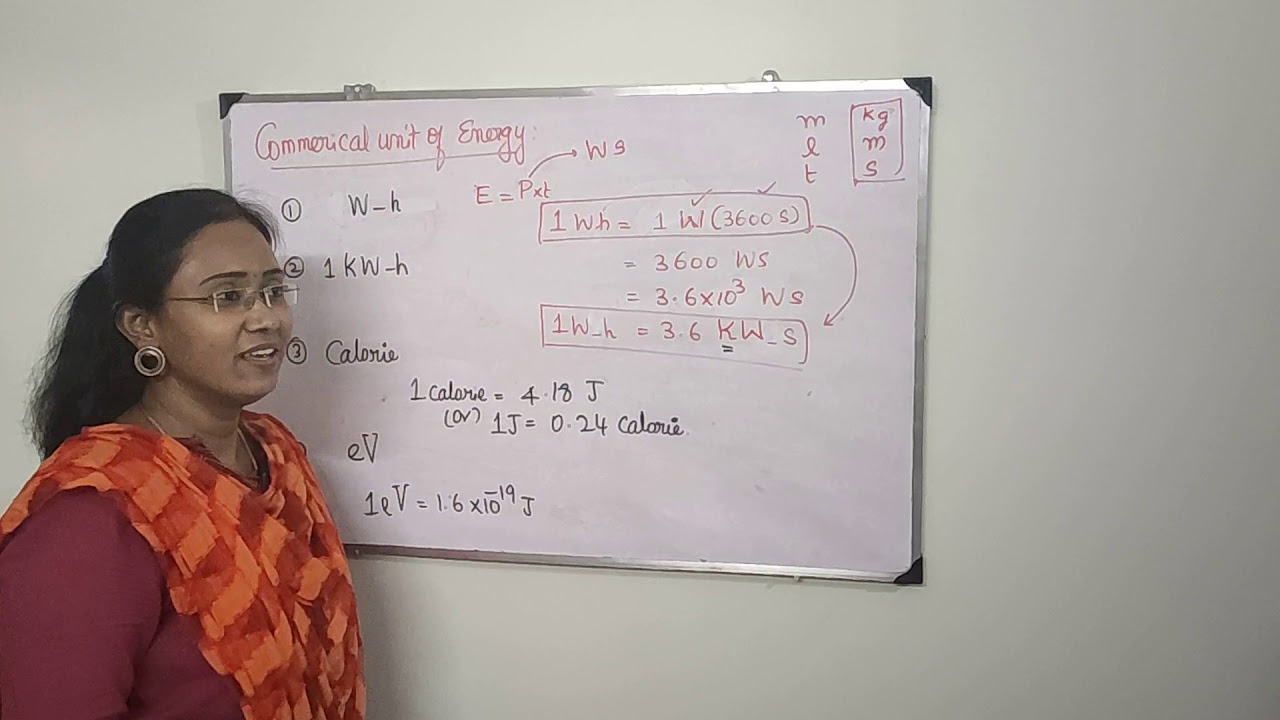 Commerical unit of Energy:
① W-h
② 1 KW-h
③ Calorie
1 calorie = 4.18 J
(or) 1J = 0.24 Calorie.
eV
1eV = 1.6 x 10⁻¹⁹ J
E = Pxt → W s
1 Wh = 1 W (3600 s)
= 3600 WS
= 3.6x10³ Ws
1W-h = 3.6 KW-S
m
l
t
kg
m
s